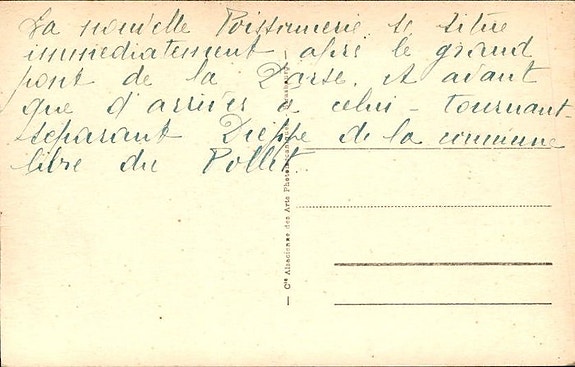 La nouvelle Poissonnerie se situe
immédiatement après le grand
pont de la Darse, et avant
que d'arriver à celui - tournant -
séparant Dieppe de la commune
libre du Pollet.
Cie Alsacienne des Arts Photomécaniques, Strasbourg